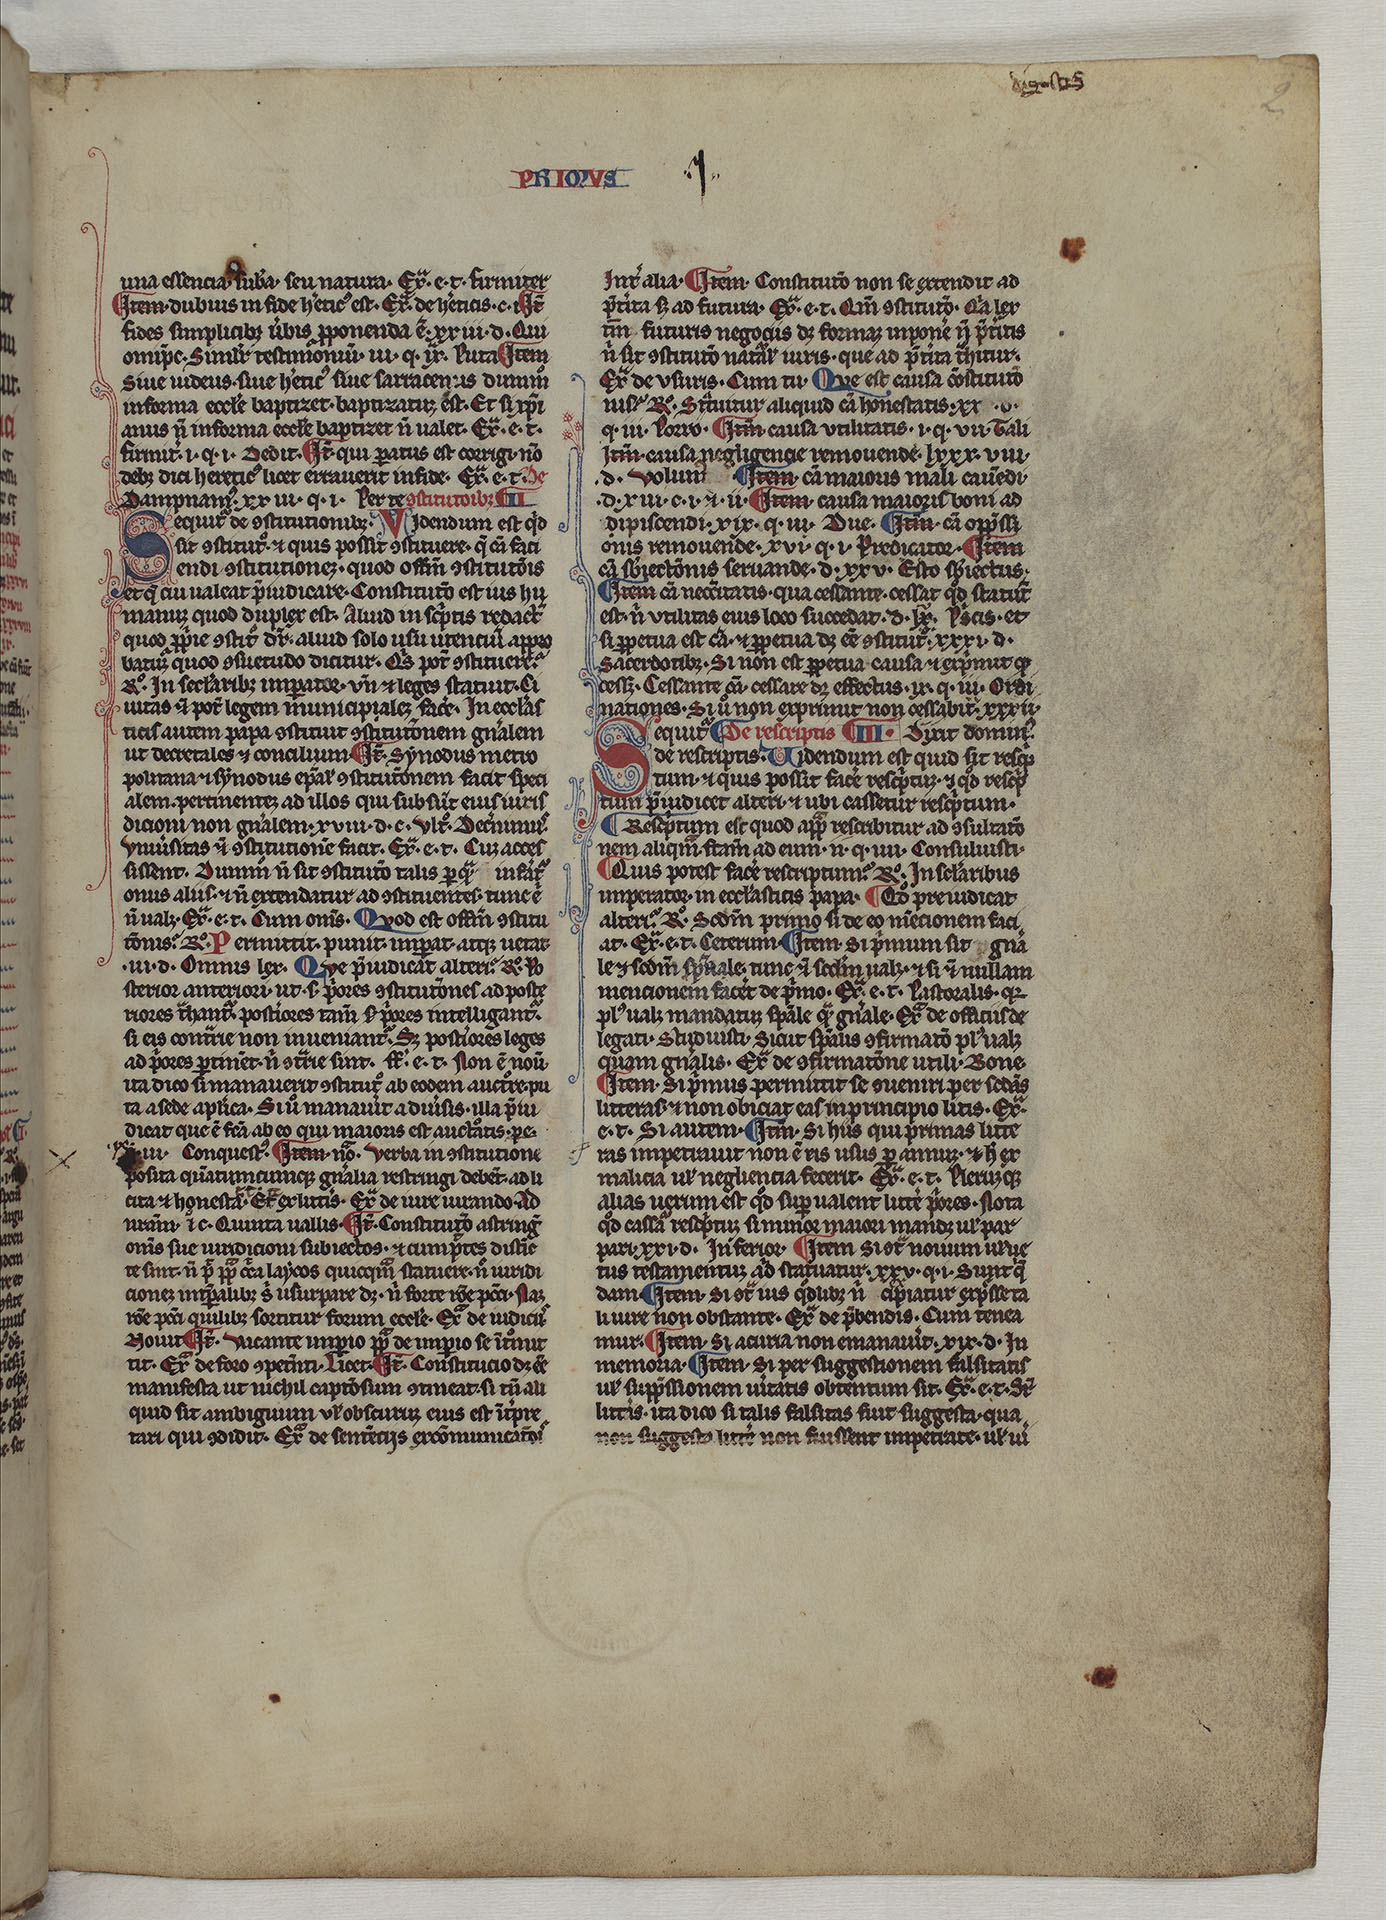 2
PRIMVS ·I·
una essencia· sub̄a· seu natura· Ex̄· e· t· firmiter
Item· dubius in fide h̄eticꝰ est· Ex̄· de h̄eticis· c· i· It̄
fides simplicibꝫ ūbis ꝓponenda ē· xxiiii· d· Qui
om̄pc· Simil̄r testimoniū· iii· q· ix· Puta Item
Siue iudeus· siue h̄eticꝰ siue sarracenus dummō
in forma eccl̄e baptizet· baptizatuꝫ est· Et si xp̄i
anus n̄ in forma eccl̄e baptizet n̄ ualet· Ex̄· e· t·
firmit̄· i· q· i· Dedit· It̄ qui paratus est corrigi nō
debꝫ dici hereticꝰ licet errauerit in fide· Ex̄· e· t· De
Dampnamꝰ· xxiiii· q· i· Per te ꝯstitutōibꝫ II
Sequit̄ de ꝯstitutionibꝫ· Videndum est qd̄
sit ꝯstitutō· ⁊ quis possit ꝯstituere· q̄ cā faci
endi ꝯstitutioneꝫ· quod offm̄ ꝯstitutōis
et q̄ cui ualeat p̄iudicare· Constitutō est ius hu
manuꝫ quod duplex est· Aliud in sc̄ptis redactū
quod ꝓprie ꝯstitō dr̄· aliud solo usu utenciū appro
batuꝫ quod ꝯsuetudo dicitur· Qis pot̄ ꝯstituere·
R̄o· In seclaribꝫ imperator· vn̄ ⁊ leges statuit· Ci
uitas n̄ pot̄ legem municipialeꝫ fac̄e· In eccl̄as
ticis autem papa ꝯstituit ꝯstitutōnem gn̄alem
ut decretales ⁊ concilium· It̄· Synodus metro
politana ⁊ synodus epal̄ ꝯstitutōnem facit speci
alem· pertinenteꝫ ad illos qui subsūt eius iuris
dicioni non gn̄alem· xviii· d· c· vlt̄o· Decernimꝰ·
Vniūsitas n̄ ꝯstitutionē facit· Ex̄· e· t· Cuꝫ acces
sissent· Dummō n̄ sit ꝯstitutō talis ꝑ quā
onus aliis· ⁊ n̄ extendatur ad ꝯstituentes· tunc ē
n̄ ualꝫ· Ex̄· e· t· Cum om̄s· Quod est offm̄ ꝯstitu
tōnis? R̄o· Permittit· punit· imperat· atqꝫ uetat
·iii· d· Omnis lex· Que p̄iudicat alteri? R̄o· Po
sterior anteriori· ut· s· p̄ores ꝯstitutōnes ad poste
riores t̄hant̄· postiores tam̄ s p̄ores intelligant̄·
si eis contr̄ie non inueniant̄· Sꝫ postiores leges
ad p̄ores ꝑtinēt· n̄ ꝯtr̄ie sint· ff̄· e· t· Non ē nouū
ita dico si manauerit ꝯstitutō ab eodem auctōre· pu
ta a sede aplica· Si ū manauit a diūsis· illa p̄iu
dicat que ē fcā ab eo qui maioris est auctōtatis· pe
iii· Conquestꝰ· Item nō· Verba in ꝯstitutione
posita quātumcumqꝫ gn̄alia restringi debēt· ad li
cita ⁊ honesta· Et ex lutis· Ex̄ de iure iurando· Ad
uram̄· i c· Quinta uallis· It̄· Constitutō astringit
om̄s sue iuridicioni subiectos· ⁊ cum p̄tes disticē
te sint· n̄ p̄t pp̄ cc̄a laycos quicqm̄ statuere· n̄ iuridi
cioneꝫ imp̄alibꝫ s̄ usurpare dꝫ· n̄ forte rōe pcc̄i· Naꝫ
rōe pcc̄i quilibꝫ sortitur forum eccl̄e· Ex̄ de iudiciis
Nouit It̄· Vacante impio pp̄ de impio se itromit
tit· Ex̄ de foro ꝯpetēti· Licet· It̄· Constitucio dꝫ eē
manifesta ut nichil captōsum ꝯtineat· si tn̄ ali
quid sit ambiguum ul̄ obscuruꝫ eius est it̄pre
tari qui ꝯdidit· Ex̄ de sentēcijs excōmunicatōis
Int̄ alia· Item· Constitutō non se extendit ad
p̄tita sꝫ ad futura· Ex̄· e· t· Qm̄ ꝯstitutō· Qia lex
tm̄ futuris negociis dꝫ formaꝫ inpon̄e n̄ p̄titis
n̄ sit ꝯstitutō natāl iuris· que ad p̄tita t̄hitur·
Ex̄ de usuris· Cum tu· Que est causa cōstitutō
nis? R̄o· Statuitur aliquid cā honestatis· xx ·d·
q· iii· Porro· Item causa utilitatis· i· q· vii· Tali
Item· causa negligencie remouende· lxxxviii·
·d· Volum Item· cā maioris mali cauēdi·
·d· xiii· c· i· ⁊ ii· Item causa maioris boni ad
dipiscendi· xix· q· iii· Due· Item· cā opp̄ssi
onis remouende· xvi· q· i· Predicator· Item
cā sbiectōnis seruande· d· xxv· Esto sbiectus·
Item cā necc̄itatis· qua cessante· cessat qd̄ statut̄
est· n̄ utilitas eius loco succedat· d· lx· P̄scis· et
si ꝑpetua est cā· ⁊ ꝑpetua dꝫ eē ꝯstitut̄· xxxi· d·
Sacerdotibꝫ· Si non est ꝑpetua causa ⁊ exp̄mit q̄
cessꝫ· Cessante cā· cessare dꝫ effectus· ix· q· iii· Ordi
nationes· Si ū non exprimit non cessabit· xxxii·
Sequit̄ De rescriptis III· Dixit dominꝰ
de rescriptis· Videndum est quid sit resc̄p
tum· ⁊ quis possit fac̄e resc̄ptuꝫ· ⁊ qd̄ resc̄p
tum p̄iudicet alteri· ⁊ ubi cassetur resc̄ptum·
Resc̄ptum est quod app̄ rescribitur ad ꝯsultatō
nem aliquā fctām ad eum· ii· q· iiii· Consuluisti·
Quis potest fac̄e rescriptum? R̄o· In seclaribus
imperator· in eccl̄asticis papa· Qd̄ preiudicat
alteri? R̄o· Scdm̄ primo si de eo mēcionem faci
at· Ex̄· e· t· Ceterum· Item· Si p̄mum sit gn̄a
le ⁊ scdm̄ sp̄iale· tunc n̄ scdm̄ ualꝫ· ⁊ si n̄ nullam
mencionem facēt de p̄mo· Ex̄· e· t· Pastoralis· qꝛ
plꝰ ualꝫ mandatuꝫ sp̄ale qꝫ gn̄ale· Ex̄ de officiis de
legati· Studuisti· Sicut sp̄alis ꝯfirmatō plꝰ ualꝫ
quam gn̄alis· Ex̄ de ꝯfirmatōne utili· Bone·
Item· Si p̄mus permittit se ꝯueniri per scdas
litteras· ⁊ non obiciat eas in principio litis· Ex̄·
e· t· Si autem· Item· Si hiis qui primas litte
ras impetrauit non ē eis usus ꝑ annuꝫ· ⁊ h̄ ex
malicia ul̄ negliencia fecerit· Ex̄· e· t· Pleruꝫqꝫ
alias uerum est qd̄ sup̄ualent litt̄e p̄ores· Nota
qd̄ cassat̄ resc̄ptuꝫ si minor maiori mandꝫ ul̄ par
pari· xxi· d· Inferior· Item Si ꝯt̄ nouum ul̄ ue
tus testamentuꝫ ad statuatur· xxv· q· i· Sunt q̄
dam· Item· Si ꝯt̄ ius qd̄libꝫ n̄ cip̄iatur exp̄sse ta
li iure non obstante· Ex̄ de p̄bendis· Cum tenea
mur· Item· Si a curia non emanauit· xix· d· In
memoria· Item· Si per suggestionem falsitatis
ul̄ supp̄ssionem ūitatis obtentum sit· Ex̄· e· t· Sr̄
litt̄is· ita dico si talis falsitas fuit suggesta· qua
non suggesta litt̄e non fuissent impetrate· ul̄ ui